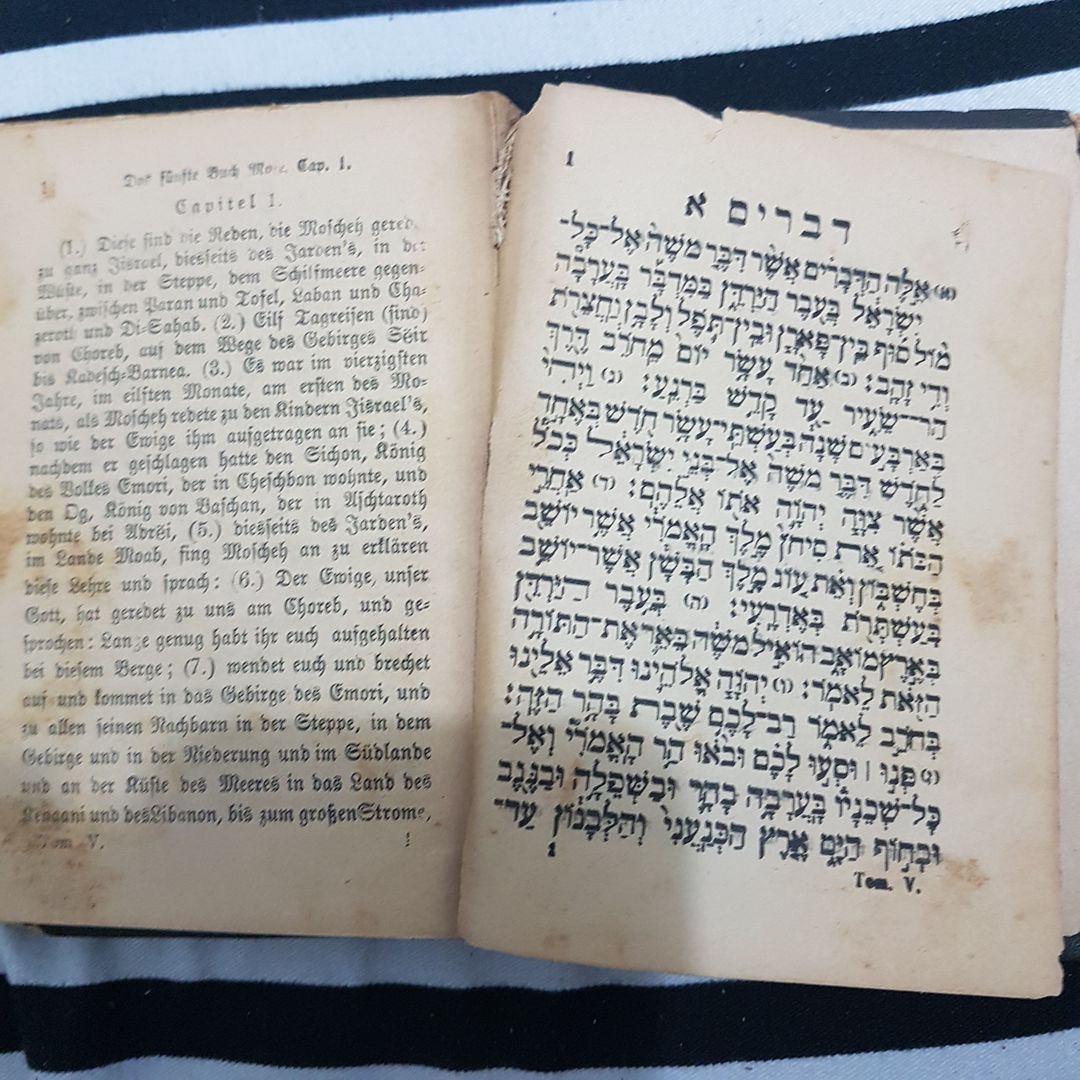 1
Das fünfte Buch Mose. Cap. 1.
Capitel 1.
(1.) Diese sind die Reden, die Moscheh gered.
zu ganz Jisrael, diesseits des Jarden's, in der
Wüste, in der Steppe, dem Schilfmeere gegen-
über, zwischen Paran und Tofel, Laban und Cha-
zeroth und Di-Sahab. (2.) Eilf Tagreisen (sind)
von Choreb, auf dem Wege des Gebirges Sëir
bis Kadesch-Barnea. (3.) Es war im vierzigsten
Jahre, im eilften Monate, am ersten des Mo-
nats, als Moscheh redete zu den Kindern Jisrael's,
so wie der Ewige ihm aufgetragen an sie; (4.)
nachdem er geschlagen hatte den Sichon, König
des Volkes Emori, der in Cheschbon wohnte, und
den Og, König von Baschan, der in Aschtaroth
wohnte bei Adrëi, (5.) diesseits des Jarden's,
im Lande Moab, fing Moscheh an zu erklären
diese Lehre und sprach: (6.) Der Ewige, unser
Gott, hat geredet zu uns am Choreb, und ge-
sprochen: Lange genug habt ihr euch aufgehalten
bei diesem Berge; (7.) wendet euch und brechet
auf und kommet in das Gebirge des Emori, und
zu allen seinen Nachbarn in der Steppe, in dem
Gebirge und in der Niederung und im Südlande
und an der Küste des Meeres in das Land des
Kenaani und des Libanon, bis zum großen Strome,
Tom V.
1
דברים א
(א) אֵלֶּה הַדְּבָרִים אֲשֶׁר דִּבֶּר מֹשֶׁה אֶל־כָּל־
יִשְׂרָאֵל בְּעֵבֶר הַיַּרְדֵּן בַּמִּדְבָּר בָּעֲרָבָה
מוֹל סוּף בֵּין־פָּארָן וּבֵין־תֹּפֶל וְלָבָן וַחֲצֵרֹת
וְדִי זָהָב׃ (ב) אַחַד עָשָׂר יוֹם מֵחֹרֵב דֶּרֶךְ
הַר־שֵׂעִיר עַד קָדֵשׁ בַּרְנֵעַ׃ (ג) וַיְהִי
בְּאַרְבָּעִים שָׁנָה בְּעַשְׁתֵּי־עָשָׂר חֹדֶשׁ בְּאֶחָד
לַחֹדֶשׁ דִּבֶּר מֹשֶׁה אֶל־בְּנֵי יִשְׂרָאֵל כְּכֹל
אֲשֶׁר צִוָּה יְהוָֹה אֹתוֹ אֲלֵהֶם׃ (ד) אַחֲרֵי
הַכֹּתוֹ אֵת סִיחֹן מֶלֶךְ הָאֱמֹרִי אֲשֶׁר יוֹשֵׁב
בְּחֶשְׁבּוֹן וְאֵת עוֹג מֶלֶךְ הַבָּשָׁן אֲשֶׁר־יוֹשֵׁב
בְּעַשְׁתָּרֹת בְּאֶדְרֶעִי׃ (ה) בְּעֵבֶר הַיַּרְדֵּן
בְּאֶרֶץ מוֹאָב הוֹאִיל מֹשֶׁה בֵּאֵר אֶת־הַתּוֹרָה
הַזֹּאת לֵאמֹר׃ (ו) יְהוָֹה אֱלֹהֵינוּ דִּבֶּר אֵלֵינוּ
בְּחֹרֵב לֵאמֹר רַב־לָכֶם שֶׁבֶת בָּהָר הַזֶּה׃
(ז) פְּנוּ ׀ וּסְעוּ לָכֶם וּבֹאוּ הַר הָאֱמֹרִי וְאֶל־
כָּל־שְׁכֵנָיו בָּעֲרָבָה בָהָר וּבַשְּׁפֵלָה וּבַנֶּגֶב
וּבְחוֹף הַיָּם אֶרֶץ הַכְּנַעֲנִי וְהַלְּבָנוֹן עַד־
1
Tom. V.